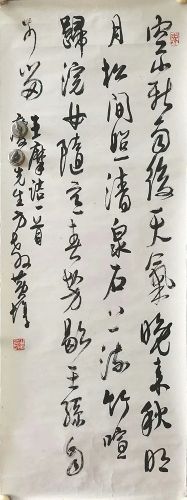 空山新雨後天氣晚來秋明
月松間照清泉石上流竹喧
歸浣女隨意春芳歇王孫自
可留
王摩詰一首
先生方家